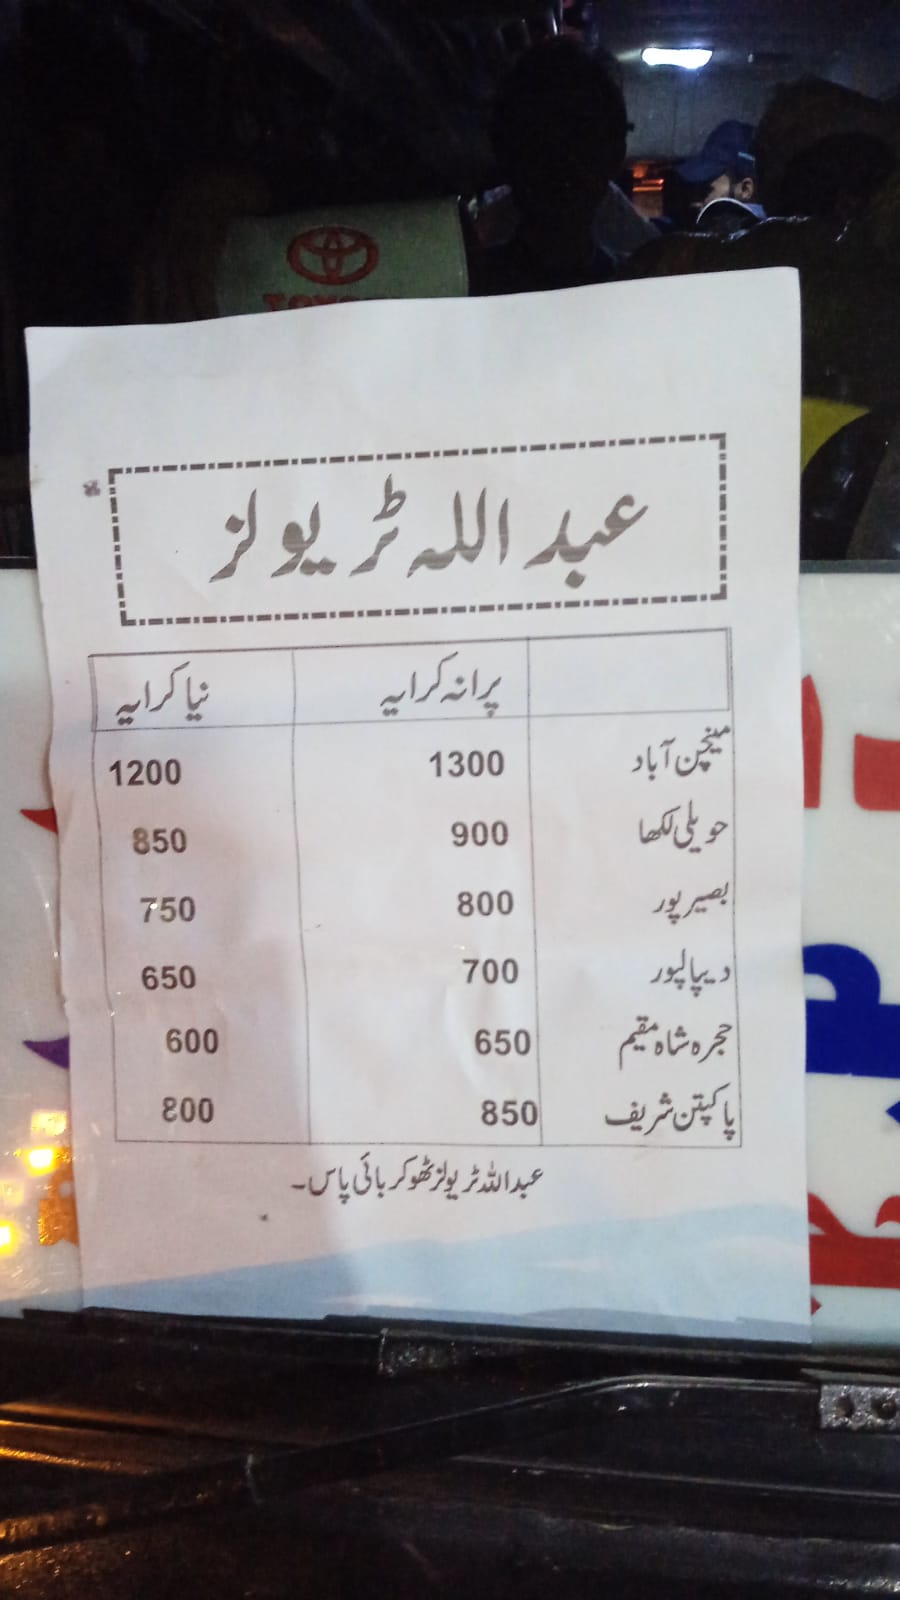 عبد اللہ ٹریولز
پرانہ کرایہ نیا کرایہ
مینچن آباد 1300 1200
حویلی لکھا 900 850
بصیر پور 800 750
دیپالپور 700 650
حجرہ شاہ مقیم 650 600
پاکپتن شریف 850 800
عبداللہ ٹریولز ٹھوکر بائی پاس۔